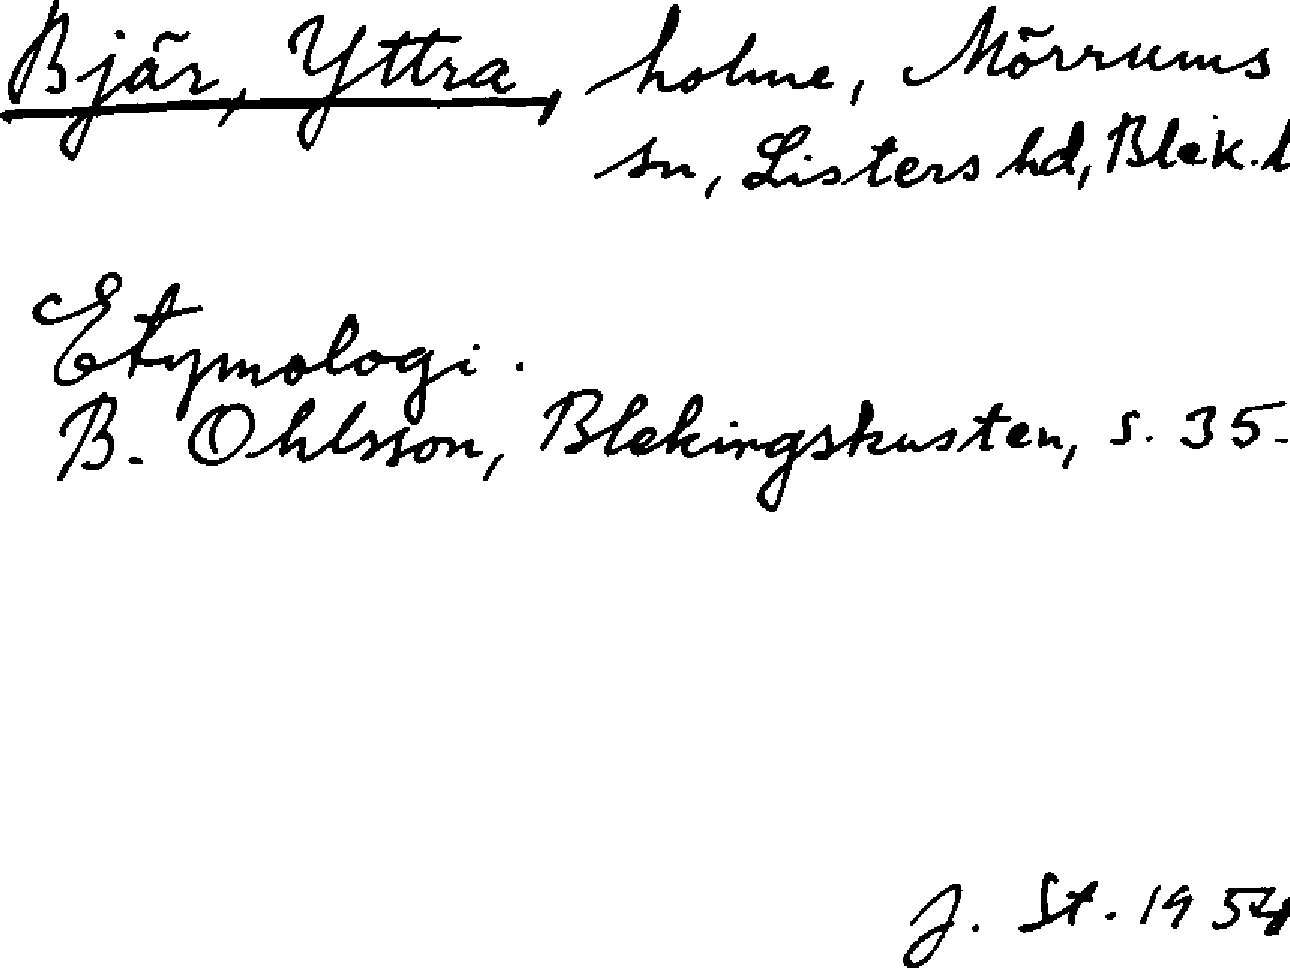 Bjär, Yttra, holme, Mörrums
sn, Listers hd, Blek. l
Etymologi.
B. Ohlsson, Blekingskusten, s. 35.
J. St. 1954